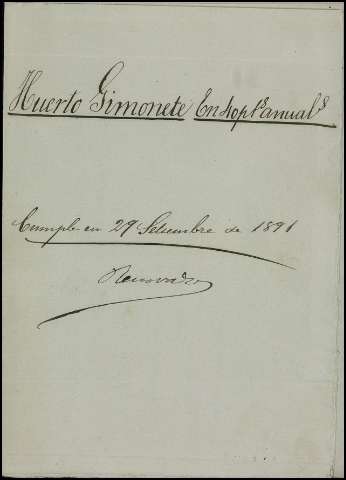 Huerto Gimonete En 40 pts anuals
Cumple en 29 Setiembre de 1891
Renovado